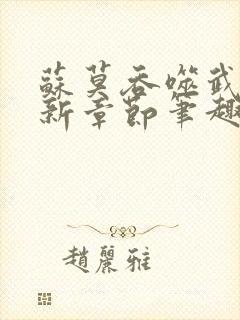 蘇莫吞噬武
新章節筆趣
趙麗雅